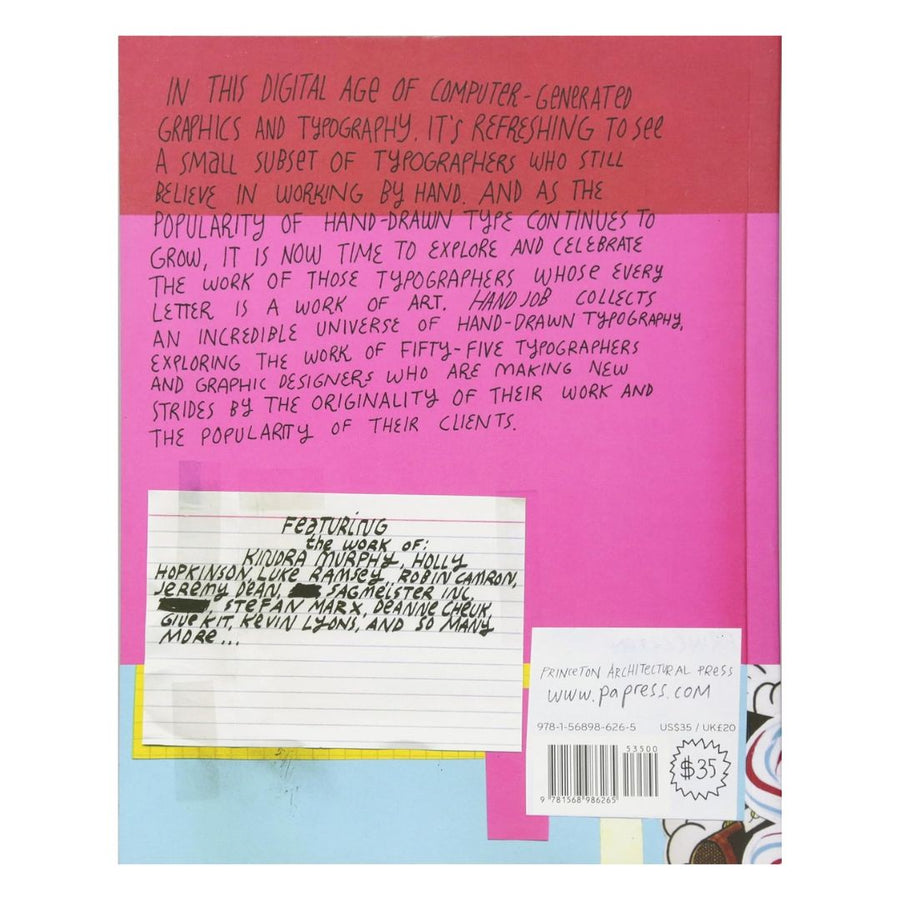 IN THIS DIGITAL AGE OF COMPUTER-GENERATED
GRAPHICS AND TYPOGRAPHY. IT'S REFRESHING TO SEE
A SMALL SUBSET OF TYPOGRAPHERS WHO STILL
BELIEVE IN WORKING BY HAND. AND AS THE
POPULARITY OF HAND-DRAWN TYPE CONTINUES TO
GROW, IT IS NOW TIME TO EXPLORE AND CELEBRATE
THE WORK OF THOSE TYPOGRAPHERS WHOSE EVERY
LETTER IS A WORK OF ART. HAND JOB COLLECTS
AN INCREDIBLE UNIVERSE OF HAND-DRAWN TYPOGRAPHY,
EXPLORING THE WORK OF FIFTY-FIVE TYPOGRAPHERS
AND GRAPHIC DESIGNERS WHO ARE MAKING NEW
STRIDES BY THE ORIGINALITY OF THEIR WORK AND
THE POPULARITY OF THEIR CLIENTS.
FEATURING
the WORK OF:
KINDRA MURPHY, HOLLY
HOPKINSON, LUKE RAMSEY, ROBIN CAMRON,
JEREMY DEAN, SAGMEISTER INC,
, STEFAN MARX, DEANNE CHEUK,
GIVE KIT, KEVIN LYONS, AND SO MANY
MORE...
PRINCETON ARCHITECTURAL PRESS
www.papress.com
978-1-56898-626-5 US$35 / UK£20
53500
$35
9 781568 986265